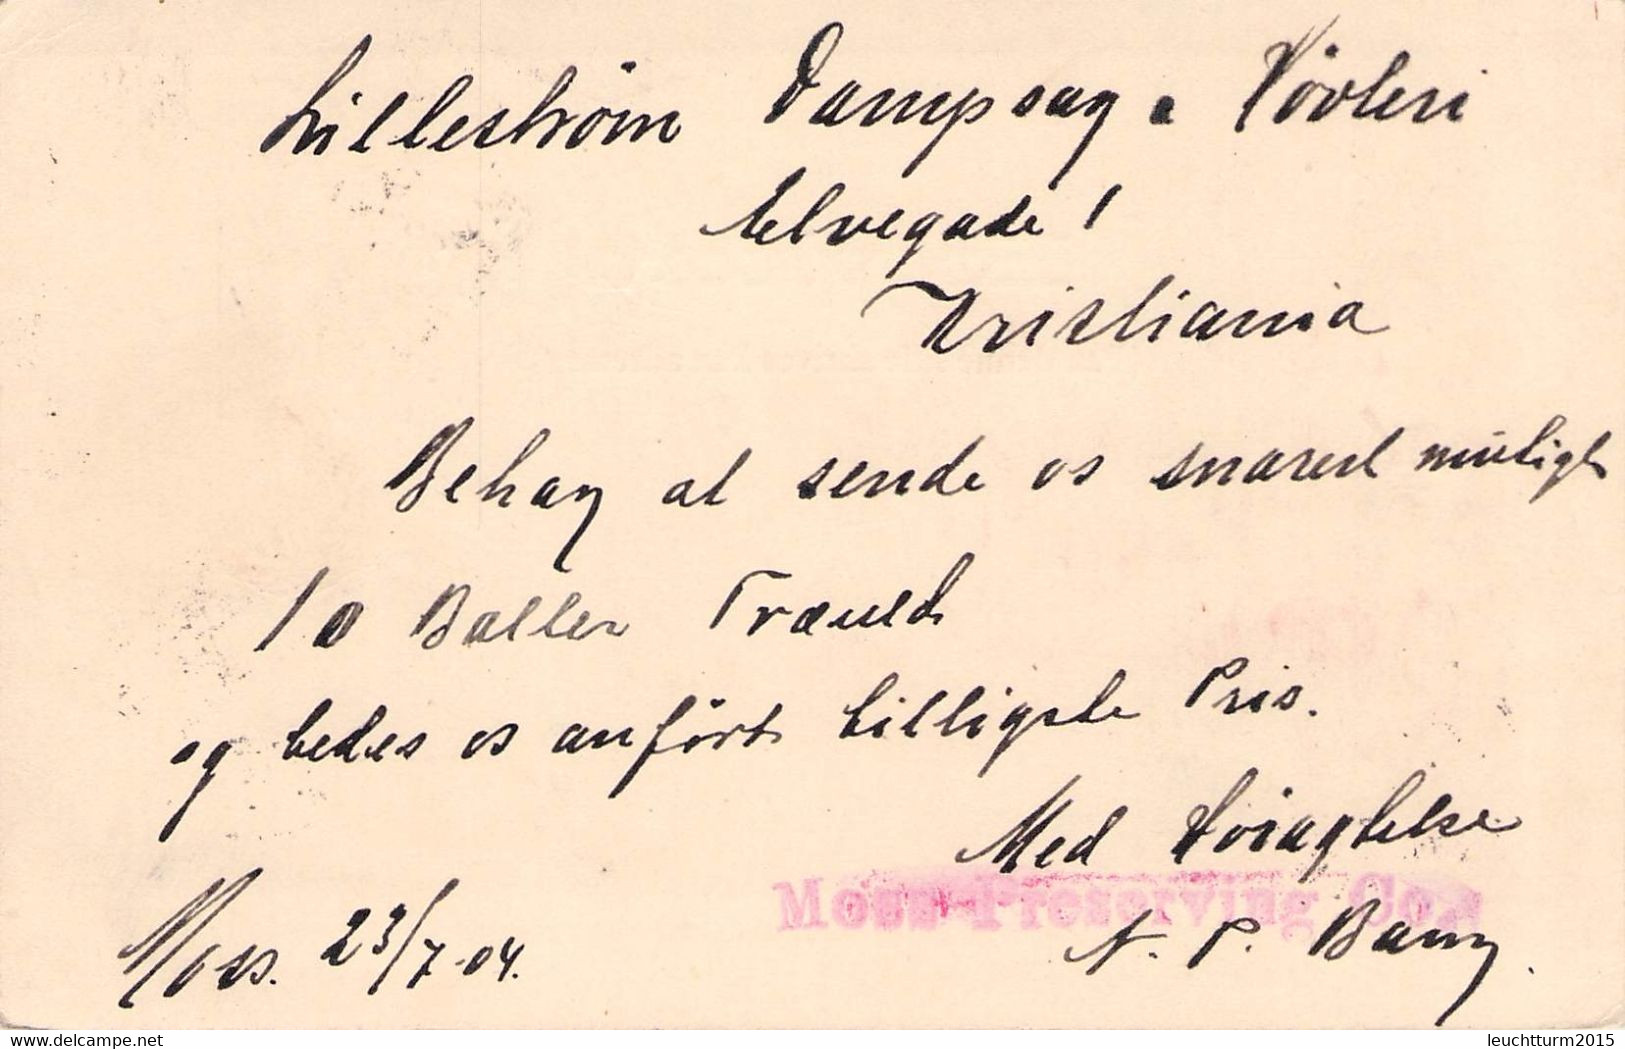 Lilleström Dampsag & Hövleri
Elvegade 1
Kristiania
Behag at sende os snarest muligt
10 Baller Træuld
og bedes os anfört billigste Pris.
Med Höiagtelse
Moss Preserving Co.
N. P. Bang.
Moss. 23/7-04.
delcampe.net
leuchtturm2015